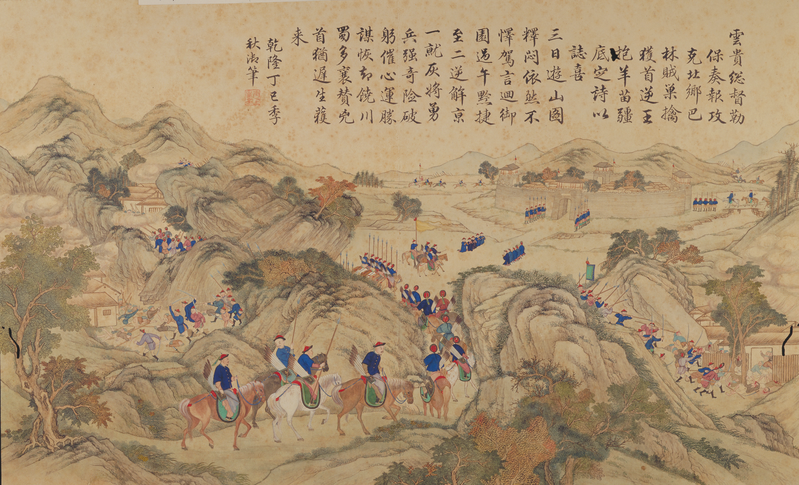 雲貴總督勒
保奏報攻
克北鄉巴
林賊巢擒
獲首逆王
抱羊苗疆
底定詩以
誌喜
三日遊山圖
釋悶依然不
懌駕言迴御
園過午黔捷
至二逆解京
一就灰將勇
兵强奇險破
躬催心運勝
謀恢却饒川
蜀多襄贊
首猶遲生獲
来
乾隆丁巳季
秋御筆